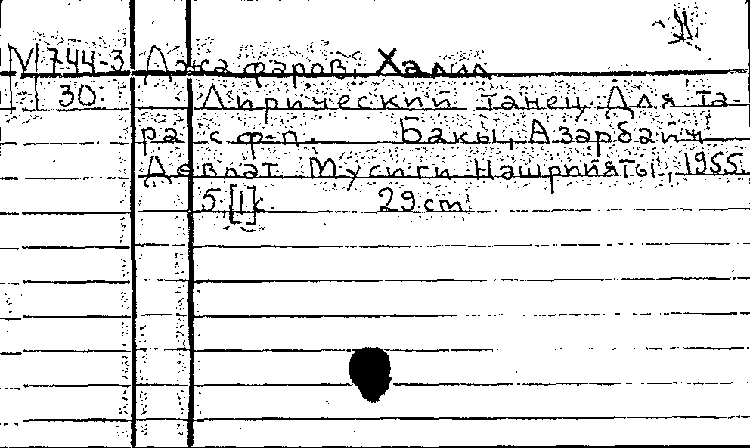 М 744-3 Джафаров, Халил
30. Лирический танец. Для та-
ра с ф-п. Бакы, Азарбайҹ
Девлат Мусиги Нашрийяты, 1955.
5 [1] с. 29 cm